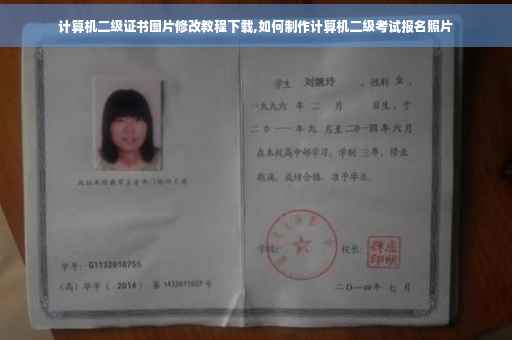 计算机二级证书图片修改教程下载,如何制作计算机二级考试报名照片
学生 刘婉玲 ,性别 女 ,
一九九六 年 二 月 日生,于
二〇一一年九 月至二〇一四年六月
在本校高中部学习,学制 三年,修业
期满,成绩合格,准予毕业。
学校: 校长:
学号: G1132010755
(高)毕字( 2014 )第 1432011027 号
二〇一四年 七 月